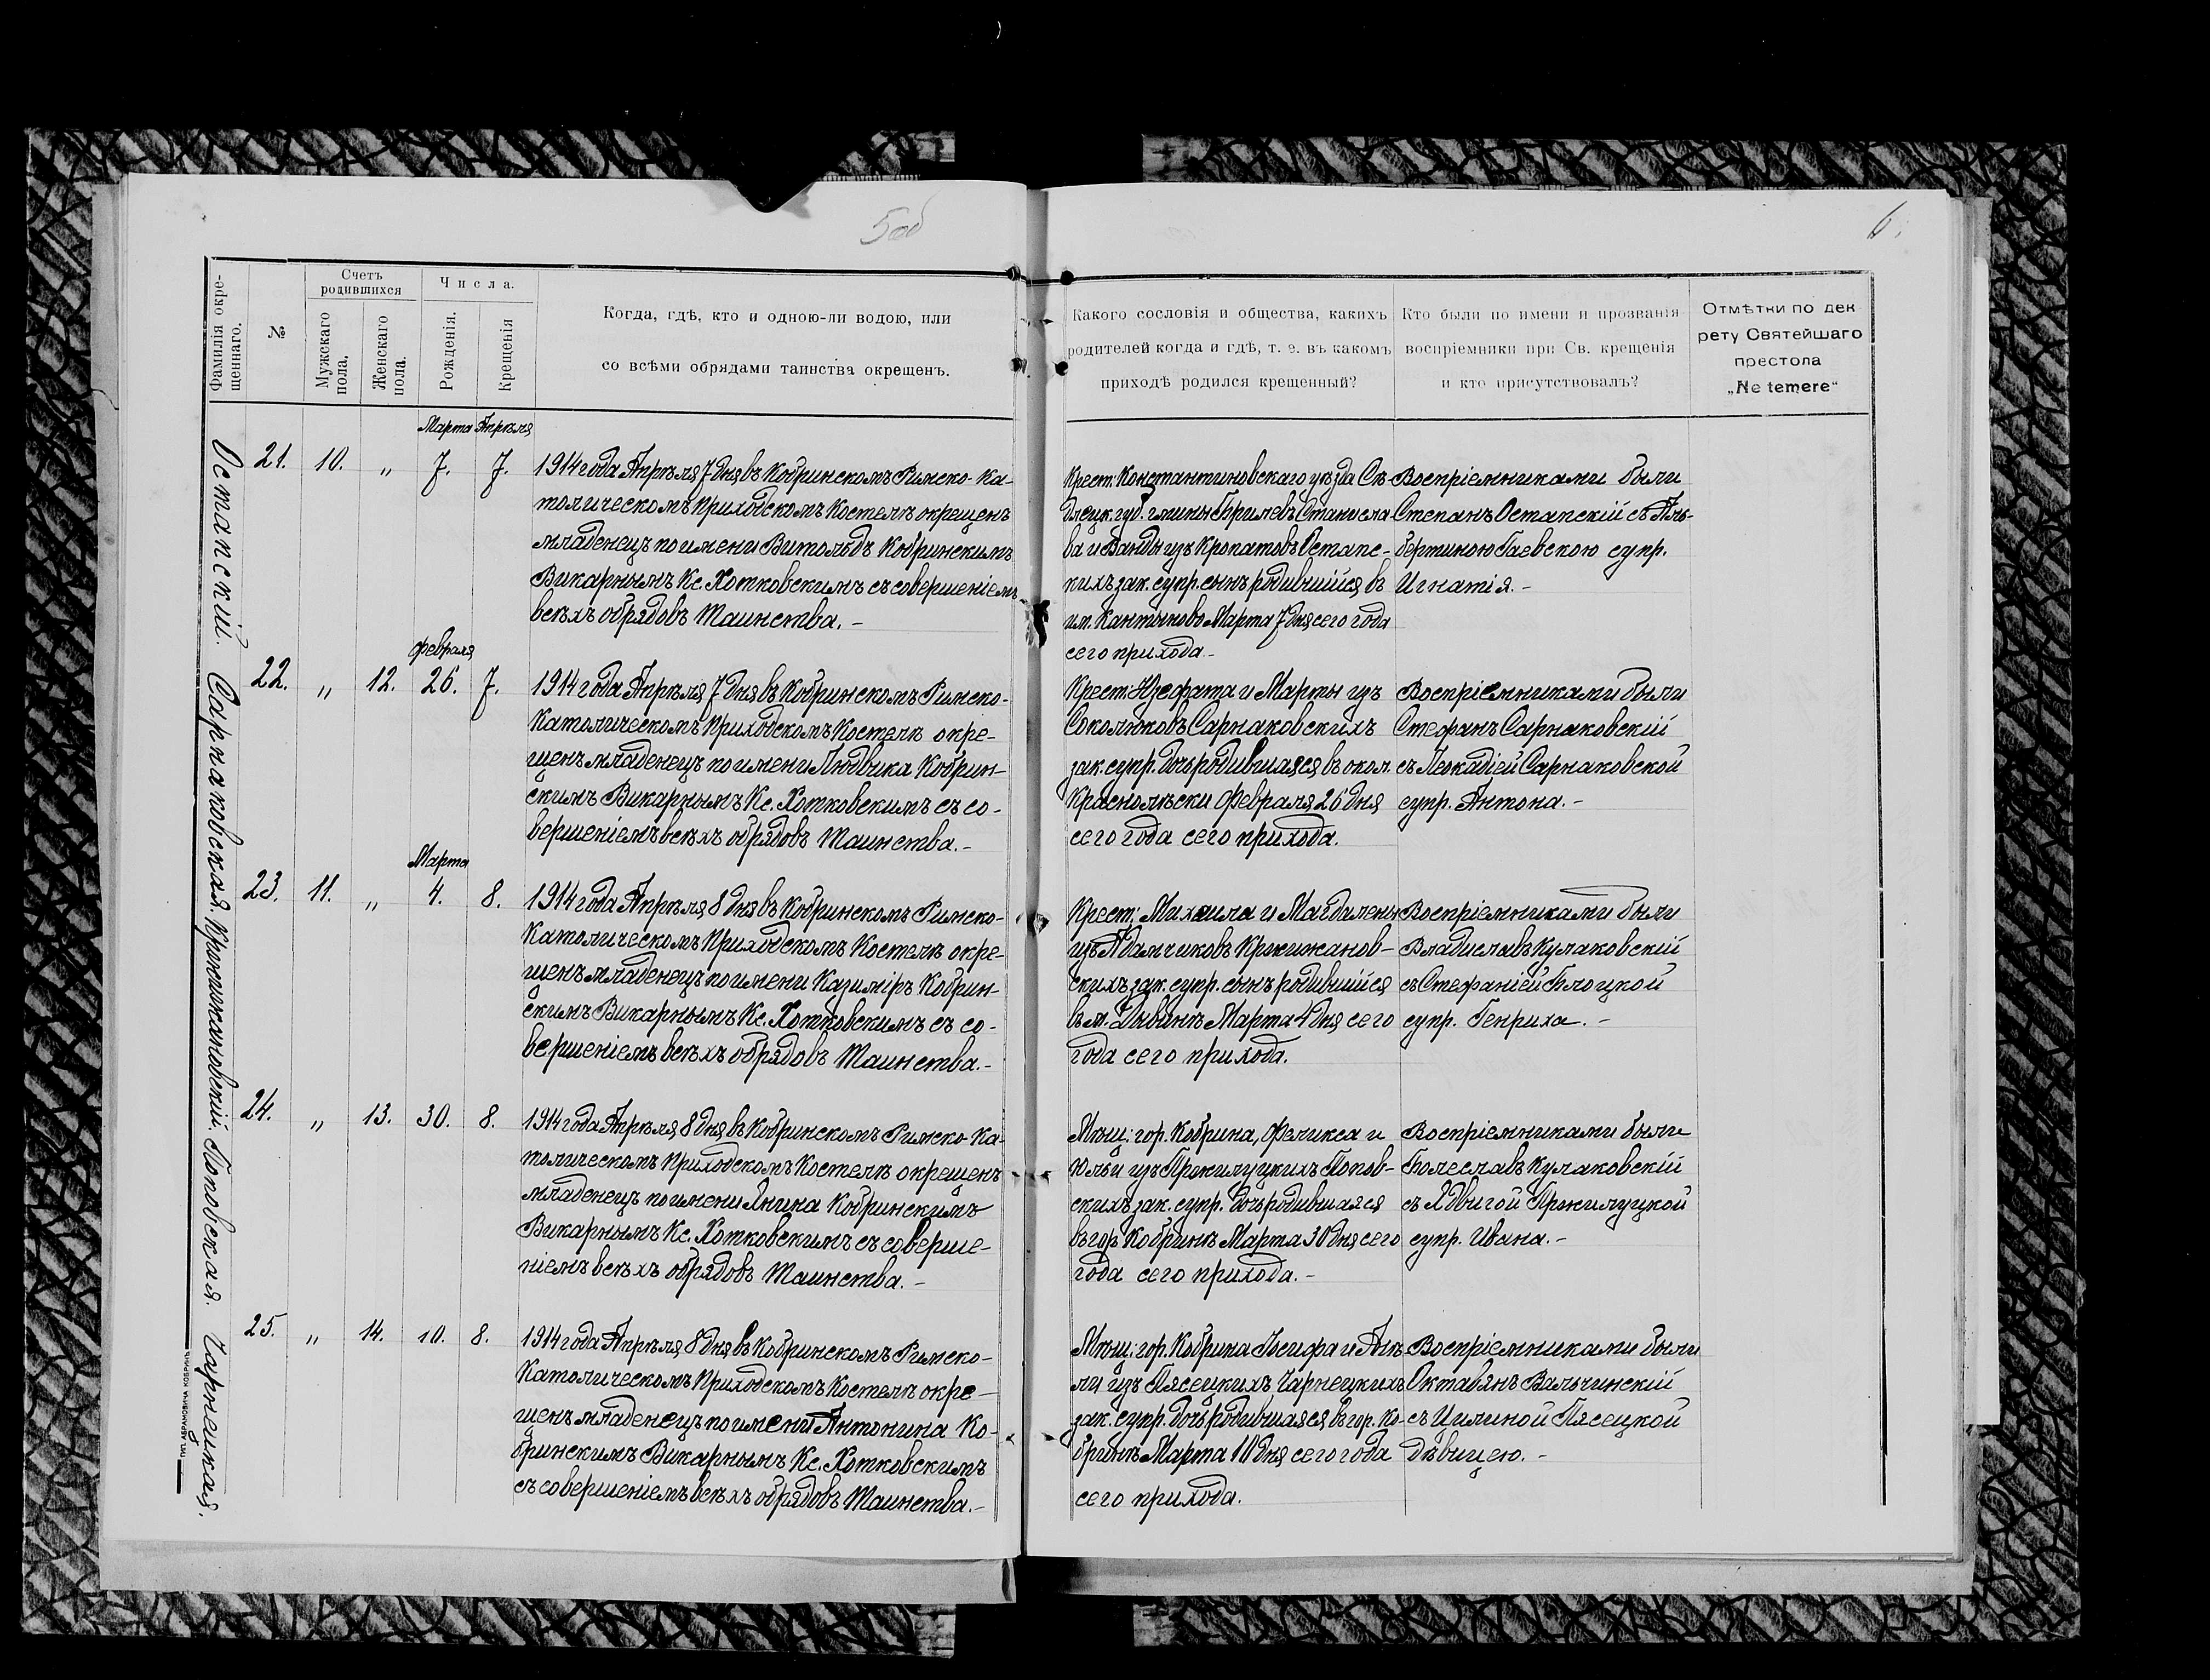 5 об
6.
Фамилія окре-
щеннаго.
№
Счетъ
родившихся
Мужскаго
пола.
Женскаго
пола.
Числа.
Рожденія.
Крещенія
Когда, гдѣ, кто и одною-ли водою, или
со всѣми обрядами таинства окрещенъ.
Какого сословія и общества, какихъ
родителей когда и гдѣ, т. е. въ какомъ
приходѣ родился крещенный?
Кто были по имени и прозванія
воспріемники при Св. крещенія
и кто присутствовалъ?
Отмѣтки по дек
рету Святейшаго
престола
„Ne temere“
Остапскій.
Марта Апрѣля
21. 10. „ 7. 7.
1914 года Апрѣля 7 дня въ Кобринскомъ Римско-Ка-
толическомъ Приходскомъ Костелѣ окрещенъ
младенецъ по имени Витольдъ Кобринскимъ
Викарнымъ Кс. Хотковскимъ съ совершеніемъ
всѣхъ обрядовъ Таинства.-
Крест: Константиновскаго уѣзда Сѣ-
длецк. губ. гмины Брилевъ Станисла
ва и Ванды изъ Кропатовъ Остапс-
кихъ зак. супр. сынъ родившійся въ
им. Кантыново Марта 7 дня сего года
сего прихода.-
Воспріемниками были
Степанъ Остапскій съ Аль-
бертиною Гаевскою супр.
Игнатія.-
Сарнаковская.
Февраля
22. „ 12. 26. 7.
1914 года Апрѣля 7 дня въ Кобринскомъ Римско-
Католическомъ Приходскомъ Костелѣ окре-
щенъ младенецъ по имени Людвика Кобрин-
скимъ Викарнымъ Кс. Хотковскимъ съ со-
вершеніемъ всѣхъ обрядовъ Таинства.-
Крест: Юзефата и Марты изъ
Соколюковъ Сарнаковскихъ
зак. супр. дочь родившаяся въ окол.
Краснолѣски Февраля 26 дня
сего года сего прихода.
Воспріемниками были
Стефанъ Сарнаковскій
съ Леокадіей Сарнаковской
супр. Антона.-
Кржижановскій.
Марта
23. 11. „ 4. 8.
1914 года Апрѣля 8 дня въ Кобринскомъ Римско-
Католическомъ Приходскомъ Костелѣ окре-
щенъ младенецъ по имени Казимiръ Кобрин-
скимъ Викарнымъ Кс. Хотковскимъ съ со-
вершеніемъ всѣхъ обрядовъ Таинства.-
Крест: Михаила и Магдалены
изъ Адамчиковъ Кржижанов-
скихъ зак. супр. сынъ родившійся
въ м. Дывинѣ Марта 4 дня сего
года сего прихода.
Воспріемниками были
Владиславъ Кулаковскій
съ Стефаніей Блоцкой
супр. Генриха.-
Поповская.
24. „ 13. 30. 8.
1914 года Апрѣля 8 дня въ Кобринскомъ Римско-Ка-
толическомъ Приходскомъ Костелѣ окрещенъ
младенецъ по имени Янина Кобринскимъ
Викарнымъ Кс. Хотковскимъ съ соверше-
ніемъ всѣхъ обрядовъ Таинства.-
Мѣщ: гор. Кобрина, Феликса и
Юльи изъ Пржилуцкихъ Попов-
скихъ зак. супр. дочь родившаяся
въ гор. Кобринѣ Марта 30 дня сего
года сего прихода.-
Воспріемниками были
Болеславъ Кулаковскій
съ Ядвигой Пржилуцкой
супр. Ивана.-
Чарнецкая.
25. „ 14. 10. 8.
1914 года Апрѣля 8 дня въ Кобринскомъ Римско-
Католическомъ Приходскомъ Костелѣ окре-
щенъ младенецъ по имени Антонина Ко-
бринскимъ Викарнымъ Кс. Хотковскимъ
съ совершеніемъ всѣхъ обрядовъ Таинства.-
Мѣщ: гор. Кобрина Іосифа и
ли изъ Пясецкихъ Чарнецкихъ
зак. супр. дочь родившаяся въ гор. Ко-
бринѣ Марта 10 дня сего года
сего прихода.
Воспріемниками были
Октавянъ Вальчинскій
съ Цилиной Пясецкой
дѣвицею.-
ТИП. АБРАМОВИЧА КОБРИНЪ